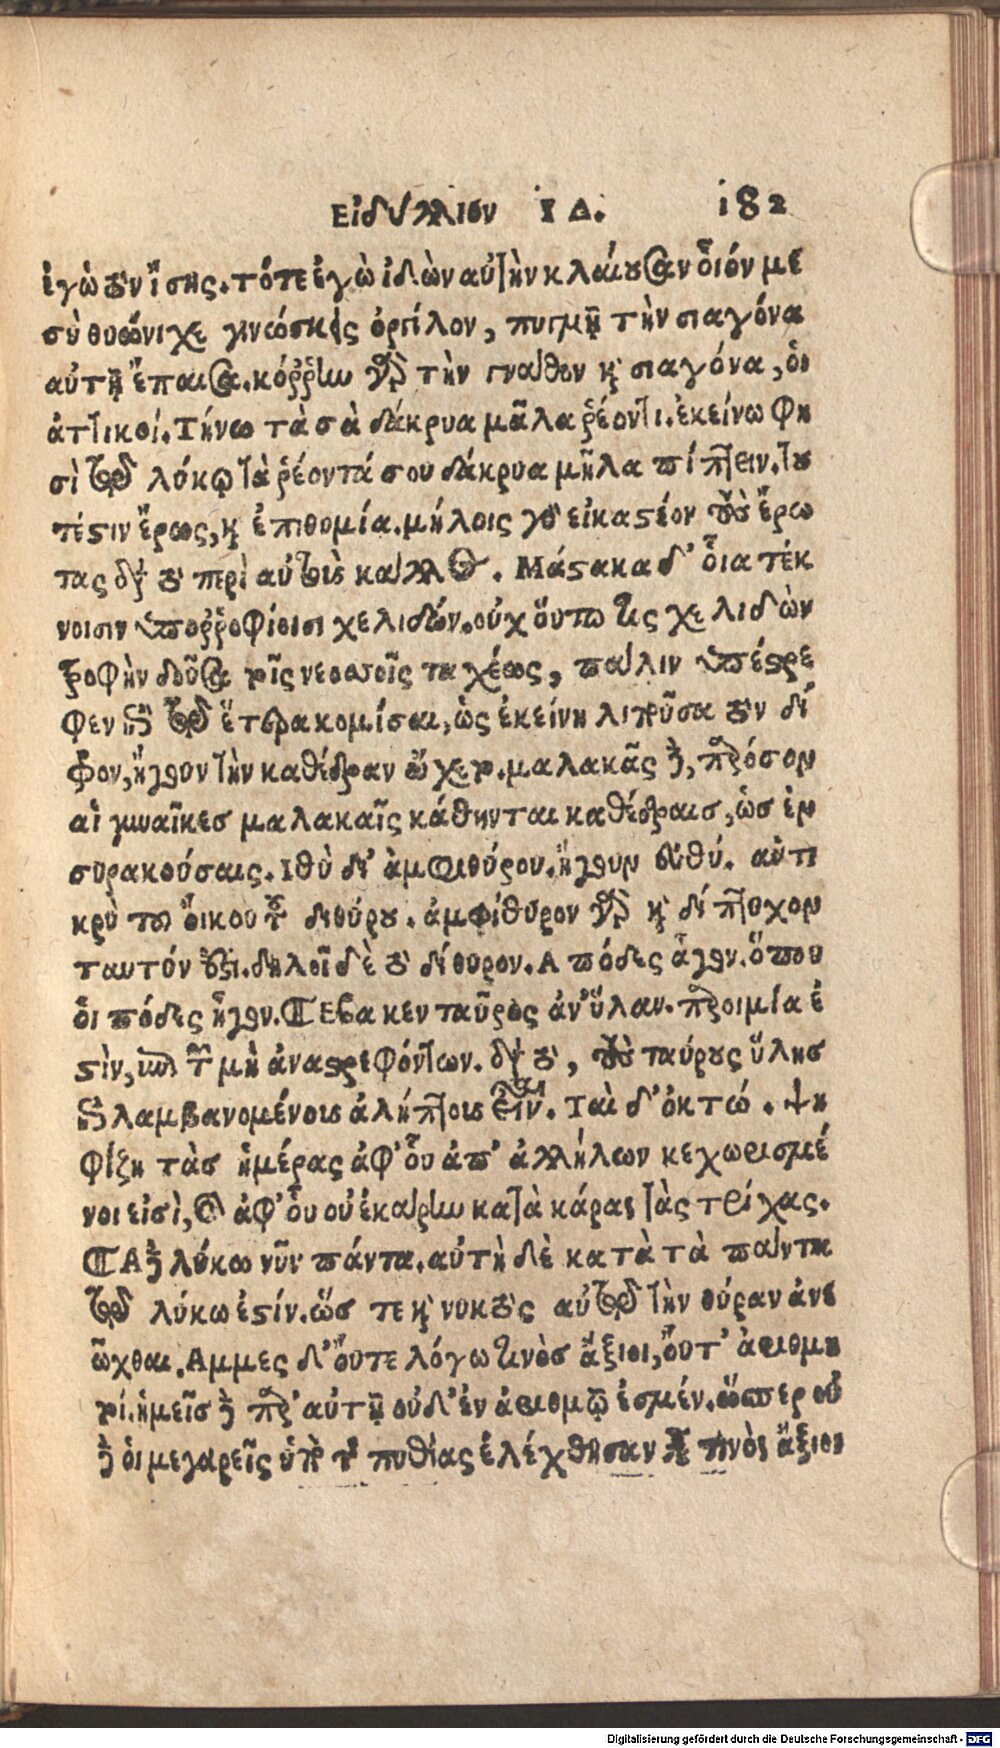 Εἰδύλλιον ΙΔ. 182
ἐγὼ τὸν ἴσης. τότε ἐγὼ ἰδὼν αὐτὴν κλαίουσαν οἷόν με
σὺ θυώνιχε γινώσκεις ὀργίλον, πυγμῇ τὴν σιαγόνα
αὐτῆς ἔπαισα. κόῤῥην γὰρ τὴν γνάθον καὶ σιαγόνα, οἱ
ἀττικοί. Τήνω τὰ σὰ δάκρυα μᾶλα ῥέοντι. ἐκείνω φη
σὶ τῷ λύκῳ τὰ ῥέοντά σου δάκρυα μῆλα πίπτειν. του
τέστιν ἔρως, καὶ ἐπιθυμία. μήλοις γὰρ εἰκαστέον τοὺς ἔρω
τας διὰ τὸ περὶ αὐτοὺς κάλλος. Μάστακα δ' οἷα τέκ
νοισιν ὑποῤῥοφίοισι χελιδών. οὐχ οὕτω τις χελιδὼν
τροφὴν δοῦσα τοῖς νεοσσοῖς ταχέως, πάλιν ὑπέστρε
φεν ἐπὶ τῷ ἕτερα κομίσαι, ὡς ἐκείνη λιποῦσα τὸν δί
φρον, ἤγουν τὴν καθέδραν ᾤχετο. μαλακᾶς δὲ, πρόσον
αἱ γυναῖκεσ μαλακαῖς κάθηνται καθέδραισ, ὡσ ἐν
συρακούσαις. Ιθὺ δι' ἀμφιθύρου. ἤγουν εὐθύ. αὐτι
κρὺ τοῦ οἴκου τοῦ διθύρου. ἀμφίθυρον γὰρ καὶ δίπτυχον
ταυτόν ἐστι. δηλοῖ δὲ τὸ δίθυρον. Α πόδες ἆγον. ὅπου
οἱ πόδες ἦγον. ¶ Εβα κεν ταῦρος ἀν' ὕλαν. παροιμία ἐ
στὶν, ἐπὶ τῶν μὴ ἀναστρεφόντων. διὰ τὸ, τοὺς ταύρους ὕλησ
ἐπιλαμβανομένους ἀλήπτους εἶναι. Ταὶ δ' ὀκτώ. ψη
φίζη τὰσ ἡμέρας ἀφ' οὗ ἀπ' ἀλλήλων κεχωρισμέ
νοι εἰσὶ, καὶ ἀφ' οὗ οὐ ἐκάρην κατὰ κάρας τὰς τρίχας.
¶ Α δὲ λύκω νῦν πάντα. αὐτὴ δὲ κατὰ τὰ πάντα
τῷ λύκω ἐστίν. ὥσ τε καὶ νυκτὸς αὐτῷ τὴν θύραν ἀνε
ῶχθαι. Αμμες δ' οὔτε λόγω τινὸσ ἄξιοι, οὔτ' ἀριθμη
τοί. ἡμεῖσ δὲ παρ' αὐτῇ οὐδ' ἐν ἀριθμῷ ἐσμέν. ὥσπερ οὐ
δὲ οἱ μεγαρεῖς ὑπὸ τῆς πυθίας ἐλέχθησαν τινὸς ἄξιοι